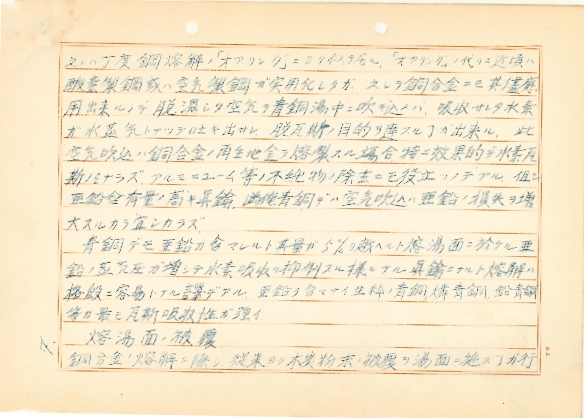 之レハ丁度鋼熔解ノ「オアリング」ニ
酸素製鋼或ハ空気製鋼ガ実用化シタガ 之レヲ銅合金ニモ其儘応
用出来ルノデ脱湿シタ空気ヲ青銅湯中ニ吹キ込メバ、吸収サレタ水素
ガ水蒸気トナッテ吐キ出サレ、脱瓦斯ノ目的ヲ達スル事ガ出来ル。此
空気吹込ハ銅合金ノ再生地金ヲ熔製スル場合特ニ効果的デ水素瓦
斯ノミナラズアルミニューム等ノ不純物ノ除去ニモ役立ツノデアル 但シ
亜鉛含有量ノ高キ真鍮、青銅デハ空気吹込ハ亜鉛ノ損失ヲ増
大スルカラ宜シカラズ
青銅デモ亜鉛ガ含マレルト其量ガ5%ヲ越ヘルト熔湯面ニ於ケル亜
鉛ノ蒸気圧ガ増シテ水素吸収ヲ抑制スル様ニナル 真鍮ニナルト熔解ハ
格段ニ容易トナル訳デアル 亜鉛ヲ含マナイ生粋ノ青銅、燐青銅、鉛青銅
等ガ最モ瓦斯吸収性ガ強イ
熔湯面ノ被覆
銅合金ノ熔解ニ際シ 従来ヨリ木炭粉末ノ被覆ヲ湯面ニ施ス事ガ行